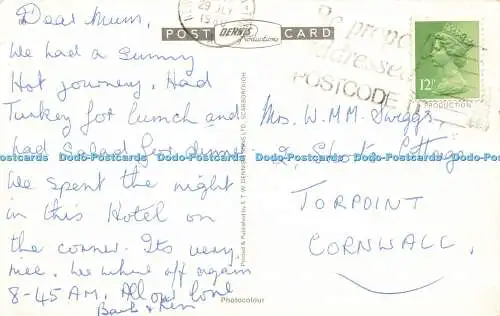 Dear Mum,
We had a sunny
Hot journey. Had
Turkey for lunch and
had Salad for dinner
We spent the night
in this Hotel on
the corner. Its very
nice. We where off again
8-45 AM. All our love
Barb & Ken
POST
DENNIS
Productions
CARD
29 JLY
1980
Be prope
addressed
POSTCODE
12P
PRODUCTION
Mrs. W. M. M. Swiggs
2, Short Cottage
TORPOINT
CORNWALL.
Printed & Published by E. T. W. DENNIS & SONS LTD., SCARBOROUGH
Photocolour
Dodo-Postcards Dodo-Postcards Dodo-Postcards Dodo-Postcards Dodo-Postcards Dodo-Postcards